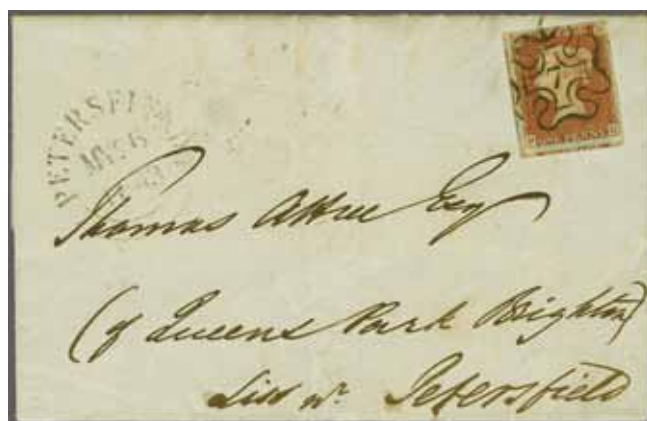 PETERSFIELD
7
Thomas Attree Esqr
(of Queens Park Brighton)
Liss nr. Petersfield